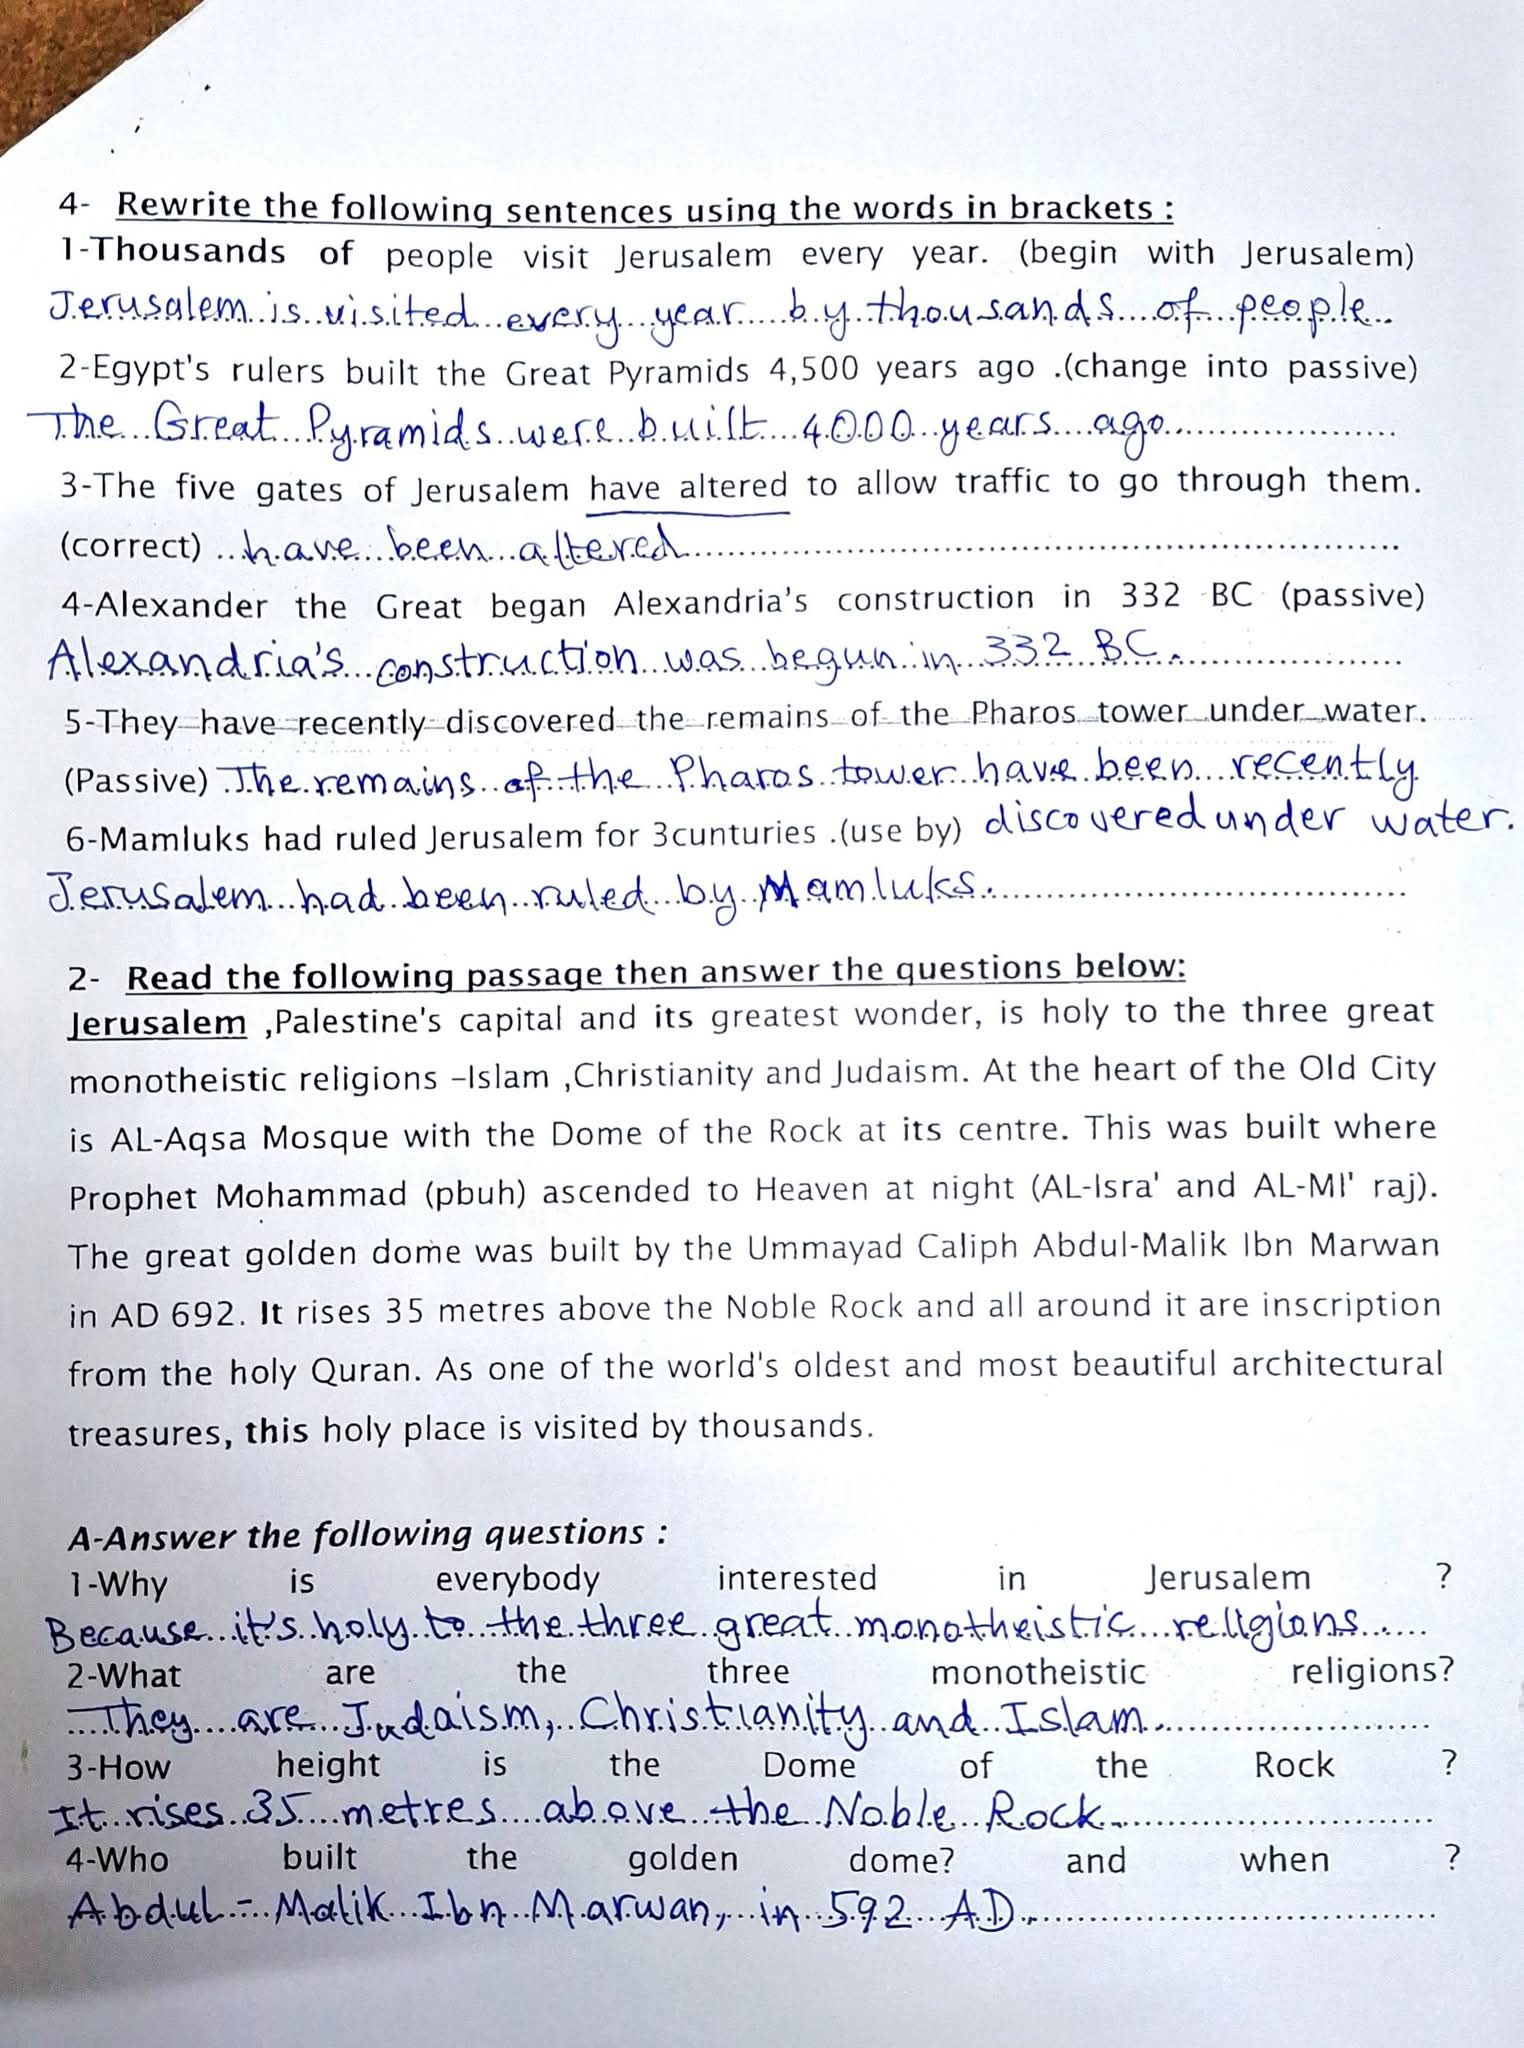 4- Rewrite the following sentences using the words in brackets :
1-Thousands of people visit Jerusalem every year. (begin with Jerusalem)
Jerusalem is visited every year by thousands of people.
2-Egypt's rulers built the Great Pyramids 4,500 years ago .(change into passive)
The Great Pyramids were built 4000 years ago.
3-The five gates of Jerusalem have altered to allow traffic to go through them.
(correct) have been altered
4-Alexander the Great began Alexandria's construction in 332 BC (passive)
Alexandria's construction was begun in 332 BC.
5-They have recently discovered the remains of the Pharos tower under water.
(Passive) The remains of the Pharos tower have been recently
discovered under water.
6-Mamluks had ruled Jerusalem for 3cunturies .(use by)
Jerusalem had been ruled by Mamluks.
2- Read the following passage then answer the questions below:
Jerusalem ,Palestine's capital and its greatest wonder, is holy to the three great
monotheistic religions –Islam ,Christianity and Judaism. At the heart of the Old City
is AL-Aqsa Mosque with the Dome of the Rock at its centre. This was built where
Prophet Mohammad (pbuh) ascended to Heaven at night (AL-Isra' and AL-MI' raj).
The great golden dome was built by the Ummayad Caliph Abdul-Malik Ibn Marwan
in AD 692. It rises 35 metres above the Noble Rock and all around it are inscription
from the holy Quran. As one of the world's oldest and most beautiful architectural
treasures, this holy place is visited by thousands.
A-Answer the following questions :
1-Why is everybody interested in Jerusalem ?
Because it's holy to the three great monotheistic religions.
2-What are the three monotheistic religions?
They are Judaism, Christianity and Islam.
3-How height is the Dome of the Rock ?
It rises 35 metres above the Noble Rock.
4-Who built the golden dome? and when ?
Abdul-Malik Ibn Marwan, in 592 AD.